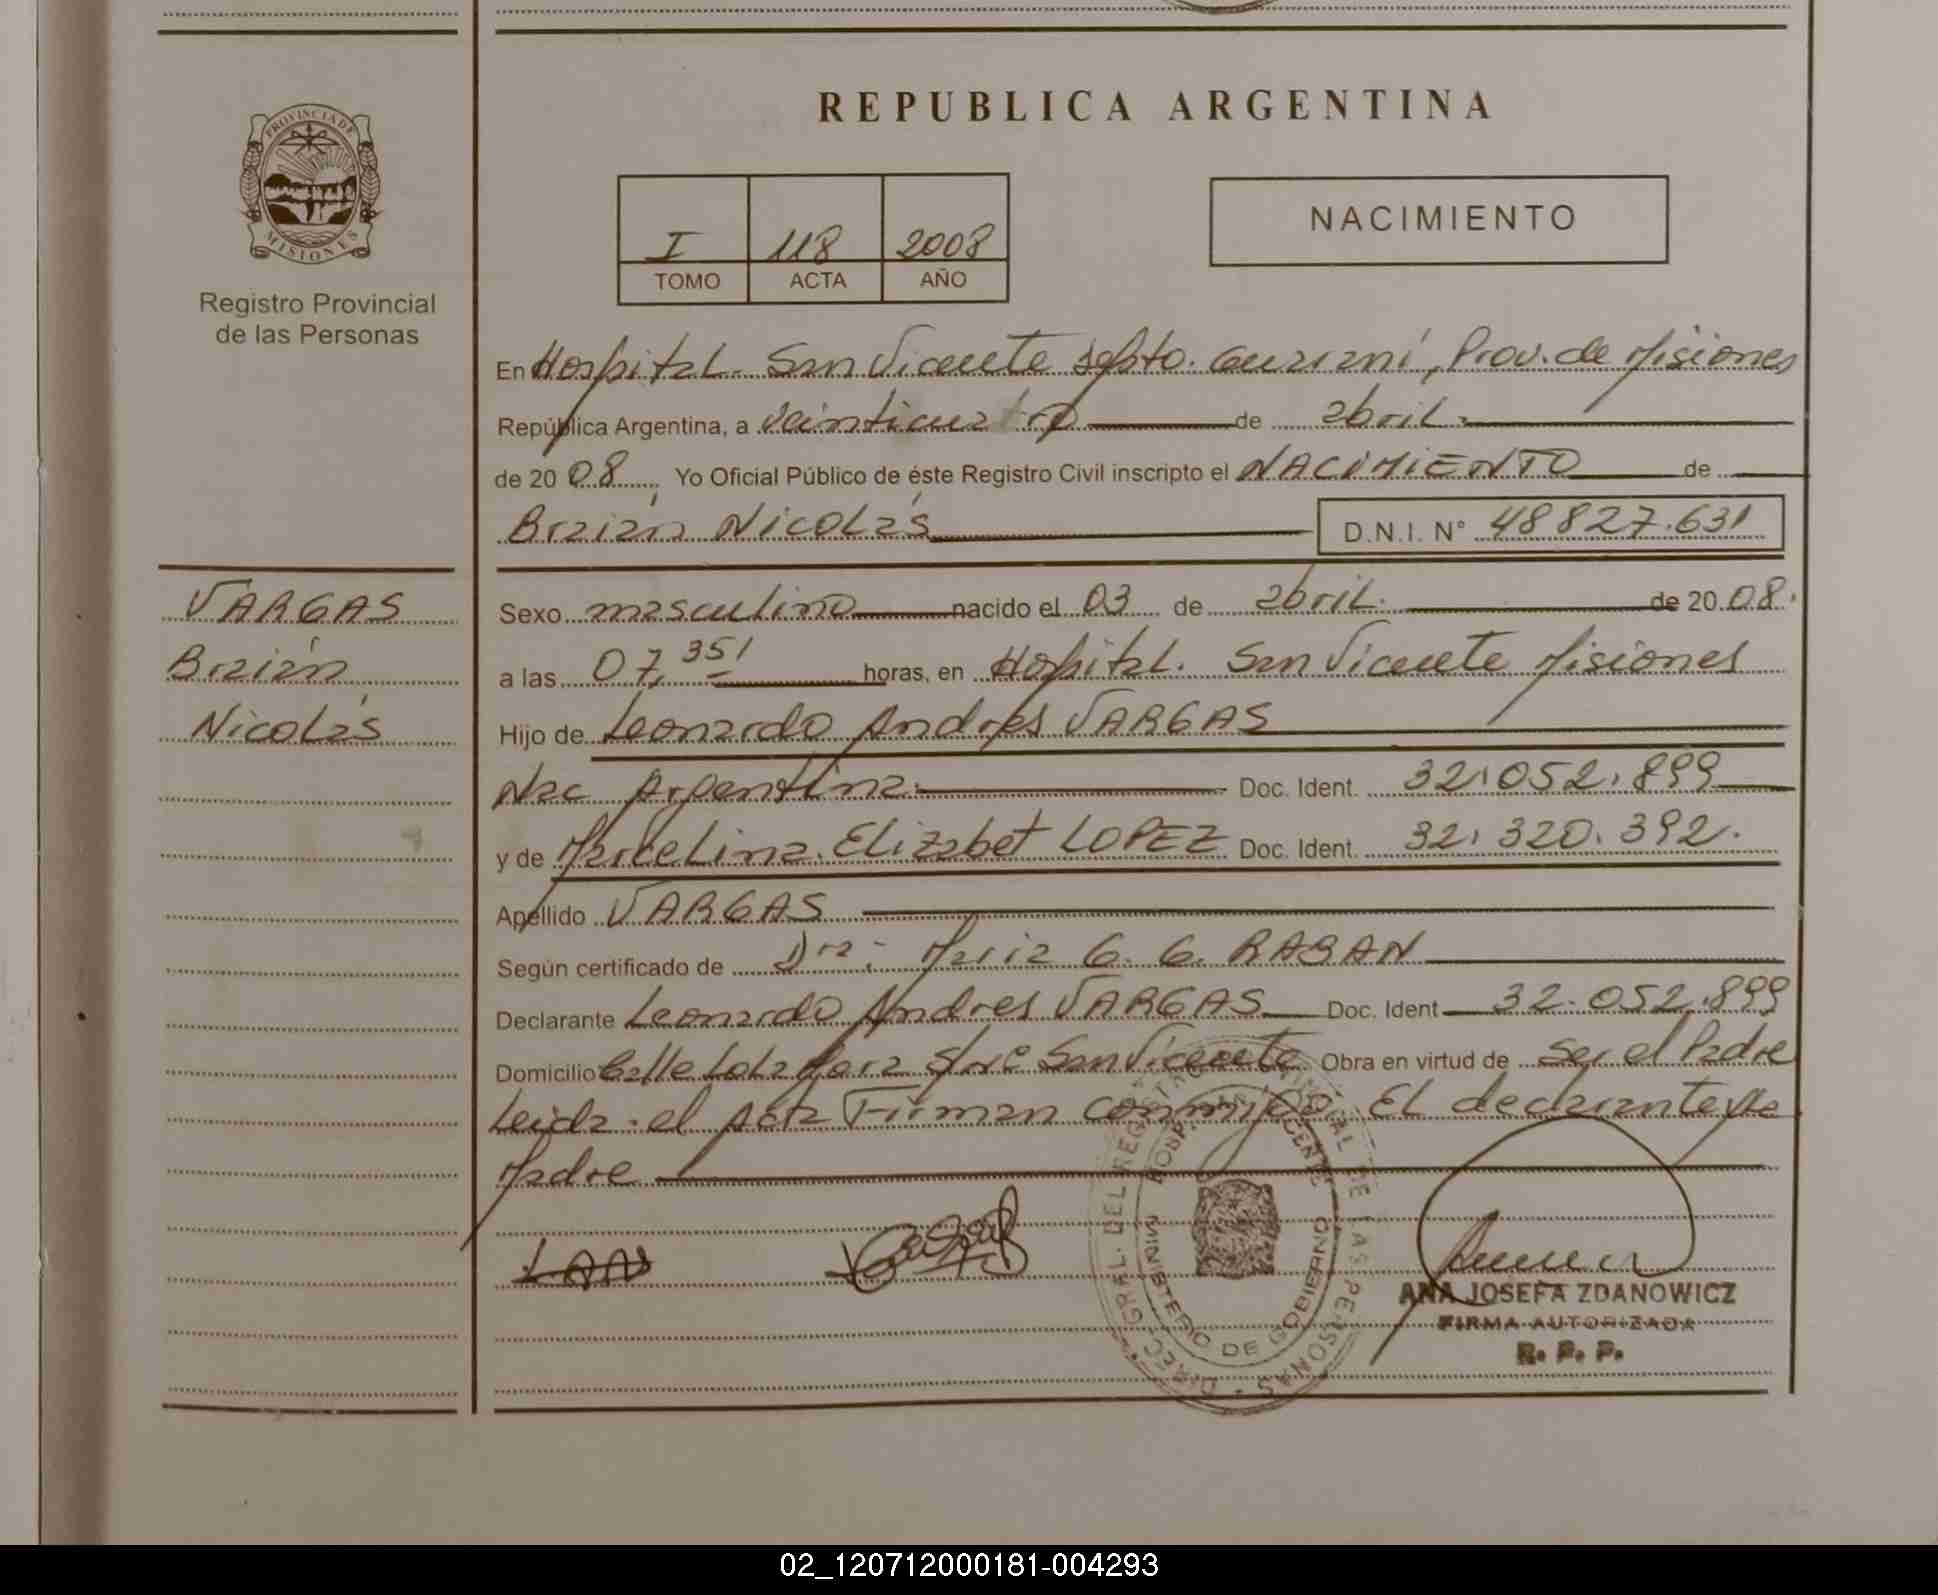 REPUBLICA ARGENTINA
PROVINCIA DE MISIONES
Registro Provincial
de las Personas
I 118 2008
TOMO ACTA AÑO
NACIMIENTO
En Hospital. San Vicente Depto. Guaraní, Prov. de Misiones
República Argentina, a veinticuatro de abril
de 20 08 Yo Oficial Público de éste Registro Civil inscripto el NACIMIENTO de
Braián Nicolás D.N.I. N° 48827.631
VARGAS
Braián
Nicolás
Sexo masculino nacido el 03 de abril. de 20 08.
a las 07,35 horas, en Hospital. San Vicente Misiones
Hijo de Leonardo Andres VARGAS
Nac Argentina. Doc. Ident. 32.052.899
y de Marcelina. Elizabet LOPEZ Doc. Ident. 32.320.392.
Apellido VARGAS
Según certificado de Dra: Maria G. G. RABAN
Declarante Leonardo Andres VARGAS Doc. Ident 32.052.899
Domicilio Calle Lola Mora S/nº San Vicente Obra en virtud de Ser el Padre
Leida. el Acta Firman conmigo. El declarante y la
Madre
DIREC. GRAL. DEL REGISTRO PROVINCIAL DE LAS PERSONAS
HOSP. SAN VICENTE
MINISTERIO DE GOBIERNO
ANA JOSEFA ZDANOWICZ
FIRMA AUTORIZADA
R. P. P.
02_120712000181-004293